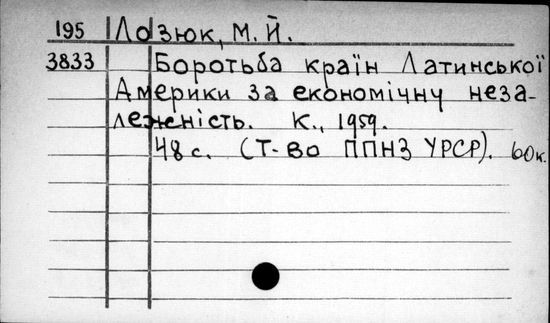 195 Лозюк, М. Й.
3833 Боротьба країн Латинської
Америки за економічну неза-
лежність. К., 1959.
48 с. (Т-во ППНЗ УРСР). 60к.